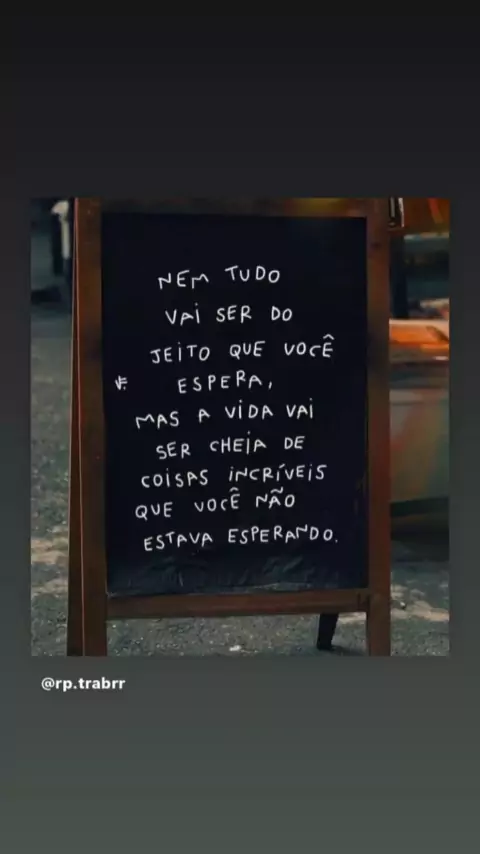 NEM TUDO
VAI SER DO
JEITO QUE VOCÊ
ESPERA,
MAS A VIDA VAI
SER CHEIA DE
COISAS INCRÍVEIS
QUE VOCÊ NÃO
ESTAVA ESPERANDO.
@rp.trabrr